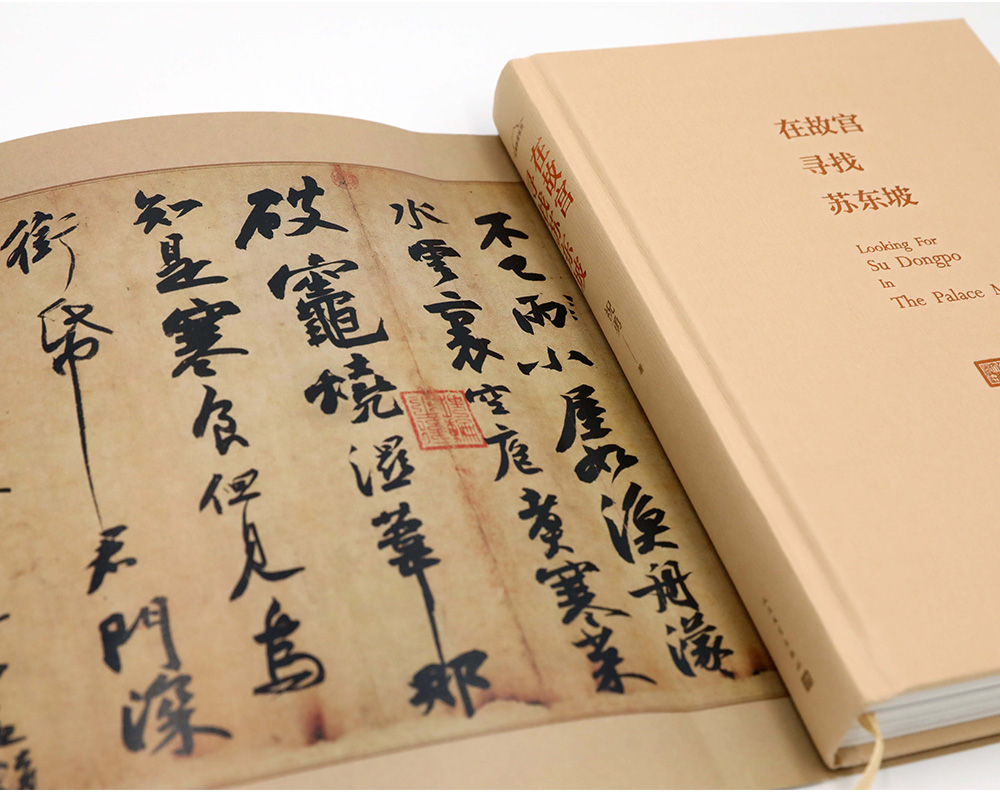 在故宫
寻找
苏东坡
Looking For
Su Dongpo
In
The Palace
在故宫寻找苏东坡
祝勇
不已雨小屋如漁舟濛
水雲裏空庖煮寒菜
破竈燒濕葦那
知是寒食但見烏
銜帋君門深